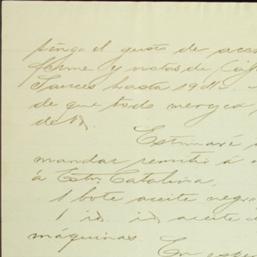 tengo el gusto de aco
forme y notas de Caf
Sauces hasta 1915.
de que todo merezca
de Vd.
Estimaré
mandar remitir á
á Estn Catalina,
1 bote aceite negro
1 id. id aceite
máquinas
En esper